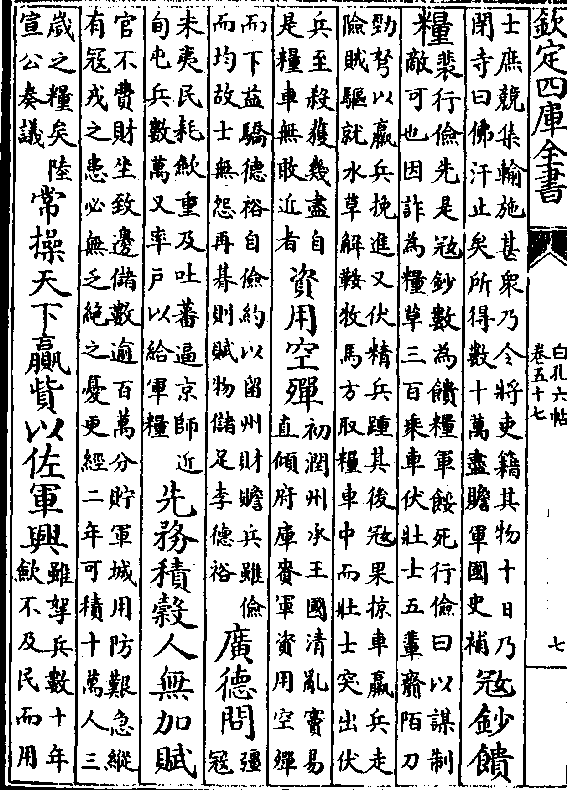 欽定四庫全書
白孔六帖
卷五十七
七
士庶競集輸施甚眾乃令將吏籍其物十日乃
閉寺曰佛汗止矣所得數十萬盡贍軍國史補
冦鈔饋
糧
裴行儉先是冦鈔數為饋糧軍餒死行儉曰以謀制
敵可也因詐為糧草三百乘車伏壯士五輩齎陌刀
勁弩以羸兵挽進又伏精兵踵其後冦果掠車羸兵走
險賊驅就水草解鞍牧馬方取糧車中而壯士突出伏
兵至殺獲幾盡自
是糧車無敢近者
資用空殫
初潤州承王國清亂竇易
直傾府庫賚軍資用空殫
而下益驕德裕自儉約以留州財贍兵雖儉
而均故士無怨再朞則賦物儲足李德裕
廣德間
彊
冦
未夷民耗歛重及吐蕃逼京師近
旬屯兵數萬又率戶以給軍糧
先務積榖人無加賦
官不費財坐致邊儲數逾百萬分貯軍城用防艱急縱
有冦戎之患必無乏絶之憂更經二年可積十萬人三
歲之糧矣陸
宣公奏議
常操天下贏貲以佐軍興
雖拏兵數十年
歛不及民而用